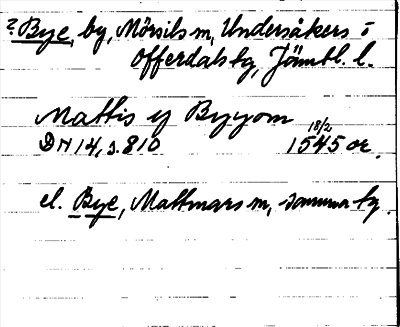 ? Bye, by, Mörsils sn, Undersåkers o
Offerdals tg, Jämtl. l.
Mattis y Byyom
DN 14, s. 810 18/2 1545 or.
el. Bye, Mattmars sn, samma tg